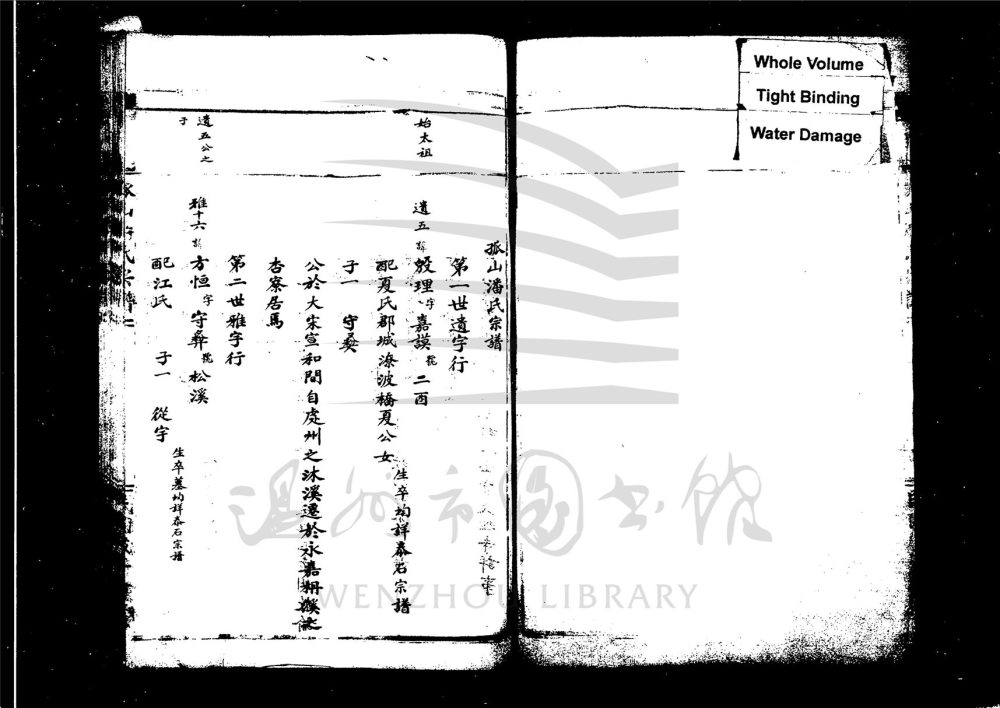 Whole Volume
Tight Binding
Water Damage
孤山潘氏宗譜
第一世遺字行
始太祖
遺五 諱 毅理 字 嘉謨 號 二酉
生卒均詳泰石宗譜
配夏氏郡城潦波橋夏公女
子一 守彛
公於大宋宣和間自處州之沐溪遷於永嘉
杏寮居焉
第二世雅字行
遺五公之子
雅十六 諱 方恒 字 守彛 號 松溪
生卒墓均詳泰石宗譜
配江氏 子一 從宇
温州市圖書館
WENZHOU LIBRARY